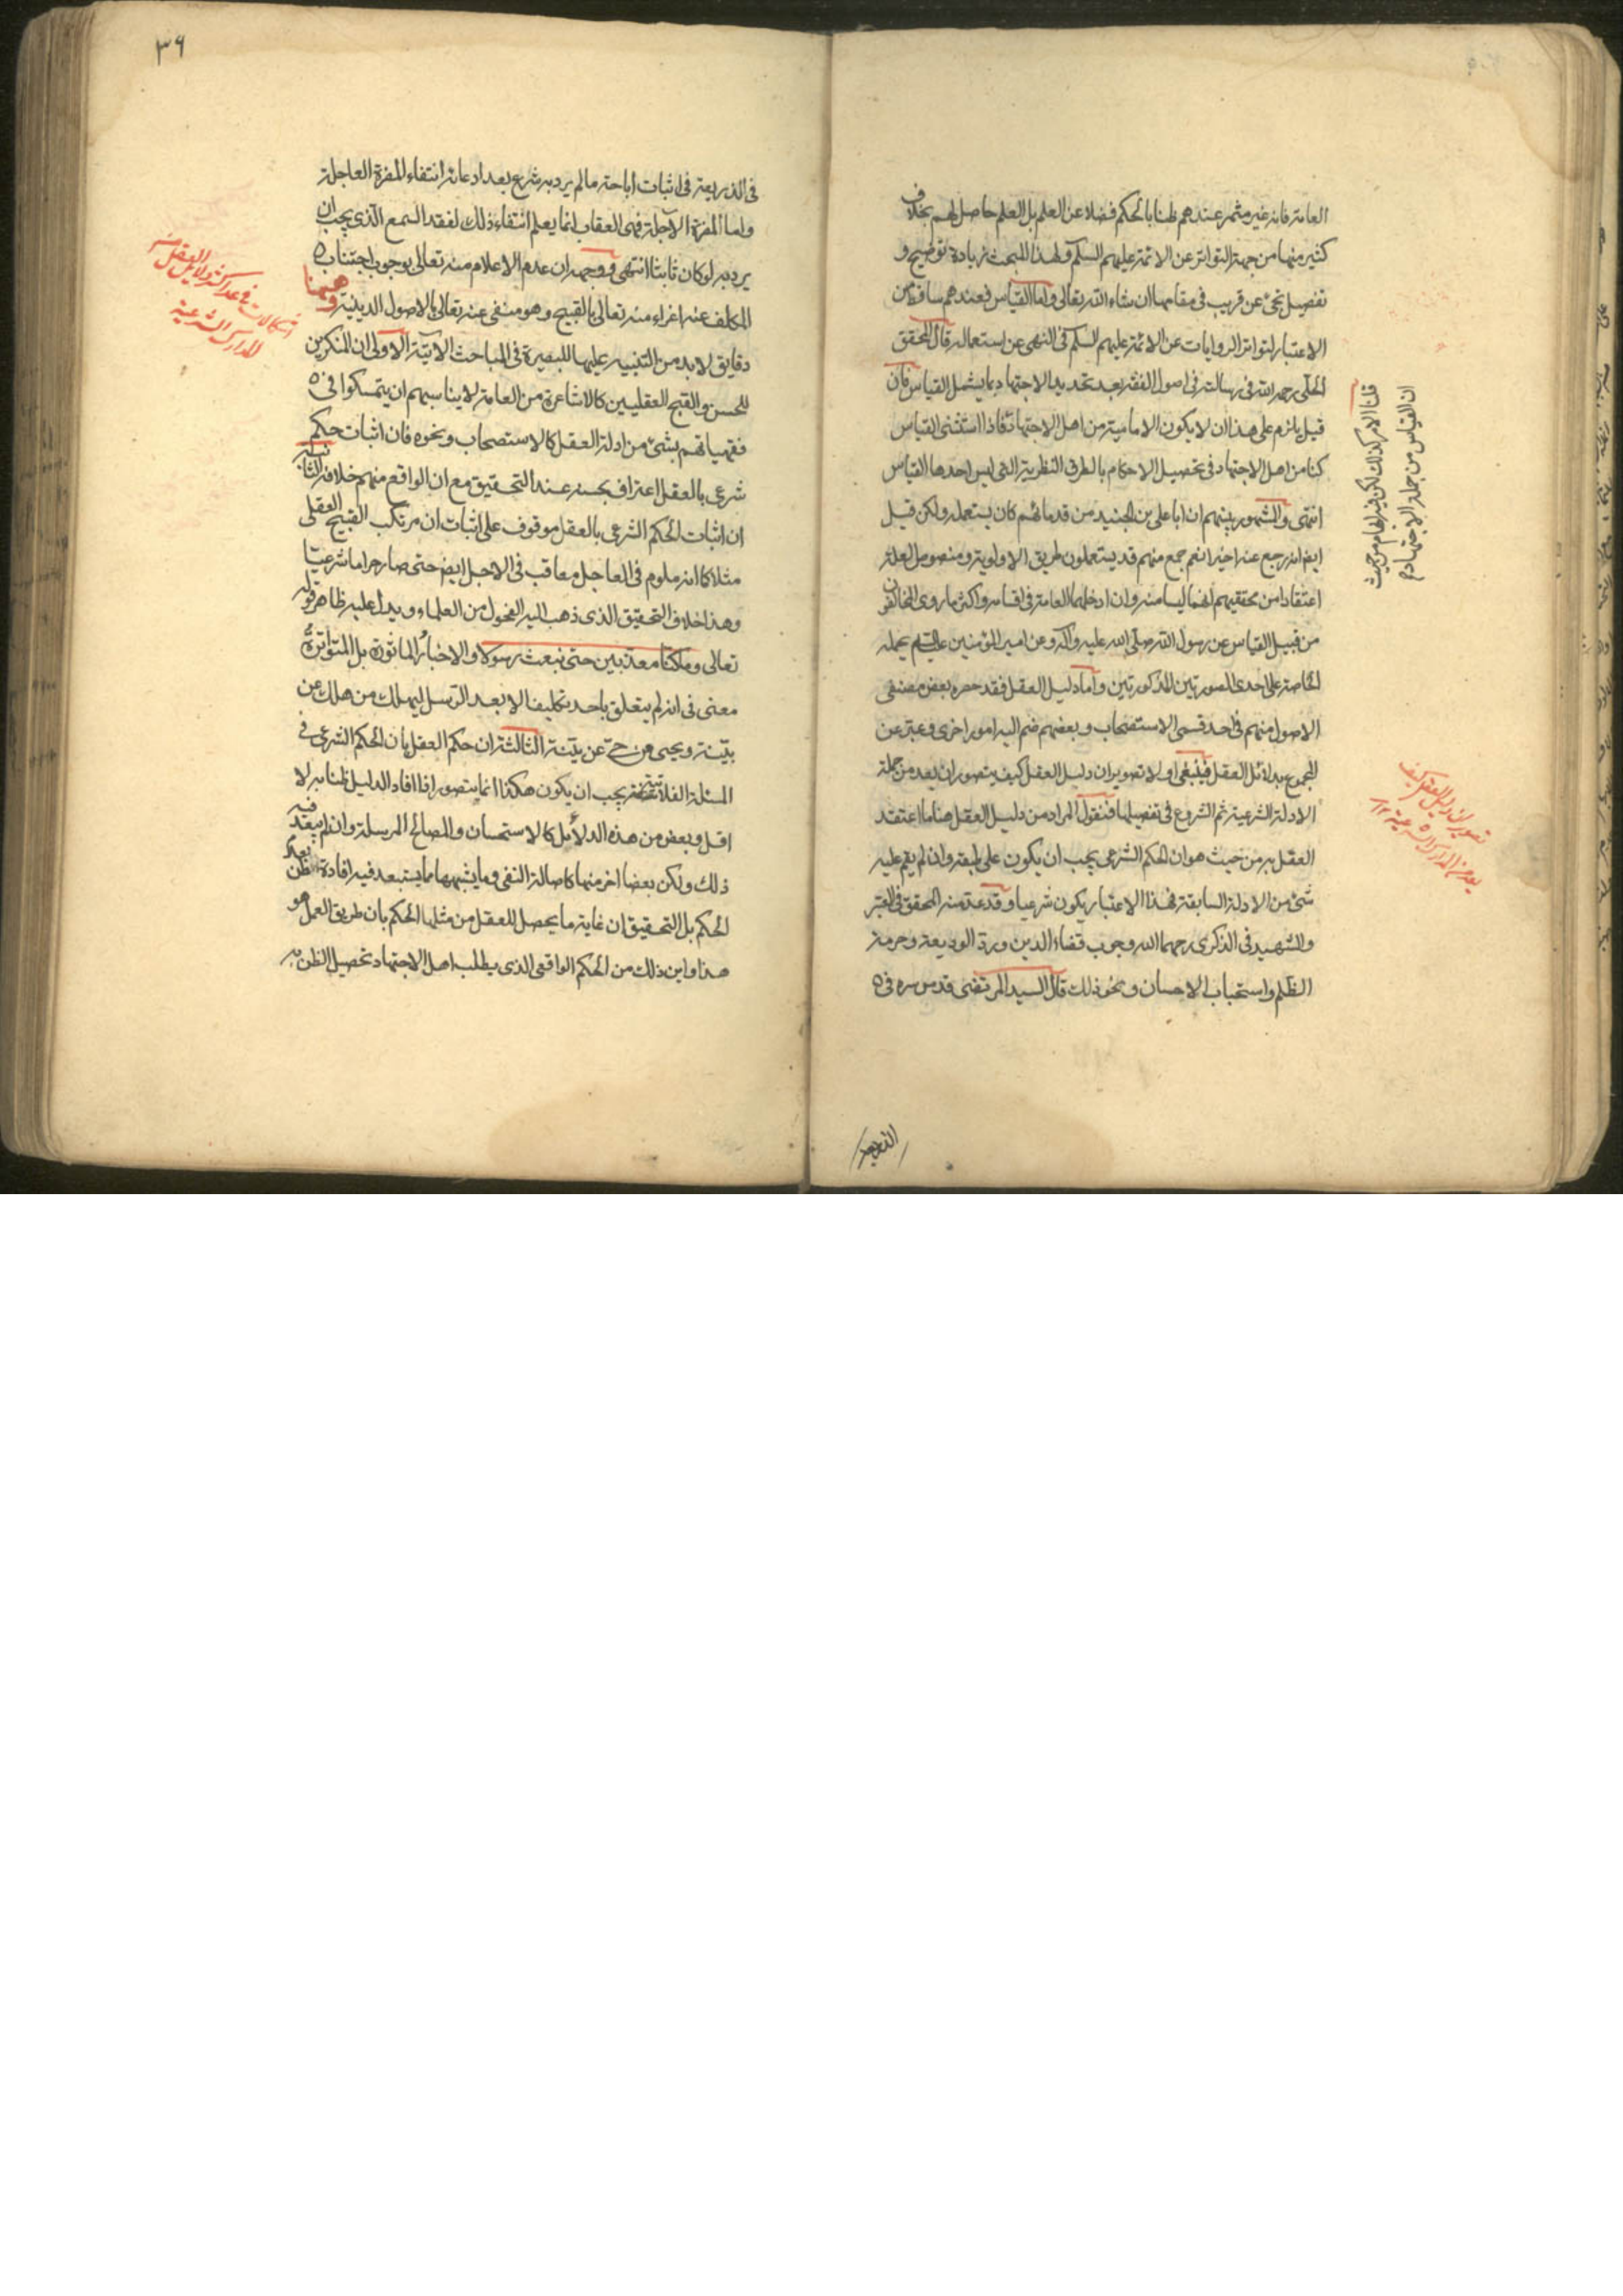 العامة فانه غير مثمر عندهم ظنا بالحكم فضلا عن العلم بل العلم حاصل لهم بخلاف
كثير منها من جهة التواتر عن الائمة عليهم السلم ولهذا المبحث زيادة توضيح و
تفصيل نجئ عن قريب في مقامها ان شاء الله تعالى واما القياس فعندهم ساقط من
الاعتبار لتواتر الروايات عن الائمة عليهم السلم في النهي عن استعماله قال المحقق
الحلي رحمه الله في رسالته في اصول الفقه بعد تحديد الاجتهاد بما يشمل القياس فان
قيل يلزم على هذا ان لا يكون الامامية من اهل الاجتهاد فاذا استثنى القياس
كنا من اهل الاجتهاد في تحصيل الاحكام بالطرق النظرية التي ليس احدها القياس
انتهى والمشهور بينهم ان ابا علي بن الجنيد من قدمائهم كان يستعمله ولكن قيل
ايضا انه رجع عنه اخيرا نعم جمع منهم قد يستعملون طريق الاولوية ومنصوص العلة
اعتقادا من محققيهم انهما ليسا منه وان ادخلهما العامة في اقسامه واكثر ما روى المخالفون
من قبيل القياس عن رسول الله صلى الله عليه وآله وعن امير المؤمنين عليه السلم يحمله
الخاصة على احدى الصورتين المذكورتين واما دليل العقل فقد حصره بعض مصنفي
الاصول منهم في احد قسمي الاستصحاب وبعضهم ضم اليه امورا اخرى وعبر عن
المجموع بدلائل العقل فينبغي اولا تصوير ان دليل العقل كيف يتصور ان يعد من جملة
الادلة الشرعية ثم الشروع في تفصيلها فنقول المراد من دليل العقل هنا ما اعتقد
العقل به من حيث هو ان الحكم الشرعي يجب ان يكون على طبقه وان لم يقم عليه
شئ من الادلة السابقة فهذا الاعتبار يكون شرعيا وقد عد منه المحقق في المعتبر
والشهيد في الذكرى رحمهما الله وجوب قضاء الدين ورد الوديعة وحرمة
الظلم واستحباب الاحسان ونحو ذلك قال السيد المرتضى قدس سره في
قلنا الامر كذلك لكن فيه ايهام من حيث
ان القياس من جملة الاجتهاد
تصوير ان دليل العقل كيف
يعد من المدارك الشرعية
٣٦
في الذريعة في اثبات اباحة ما لم يرد به شرع بعد ادعائه انتفاء المضرة العاجلة
واما المضرة الآجلة فهي العقاب انما يعلم انتفاء ذلك لفقد السمع الذي يجب ان
يرد به لو كان ثابتا انتهى ووجهه ان عدم الاعلام منه تعالى بوجوب اجتناب
المكلف عنه اغراء منه تعالى بالقبيح وهو منفي عنه تعالى بالاصول الدينية وههنا
دقايق لا بد من التنبيه عليها للبصيرة في المباحث الاتية الاولى ان المنكرين
للحسن والقبح العقليين كالاشاعرة من العامة لا يناسبهم ان يتمسكوا في
فقهياتهم بشئ من ادلة العقل كالاستصحاب ونحوه فان اثبات حكم
شرعي بالعقل اعتراف بحسنه عند التحقيق مع ان الواقع منهم خلافه الثانية
ان اثبات الحكم الشرعي بالعقل موقوف على اثبات ان مرتكب القبيح العقلي
مثلا كما انه ملوم في العاجل معاقب في الاجل ايضا حتى صار حراما شرعيا
وهذا خلاف التحقيق الذي ذهب اليه الفحول من العلماء ويدل عليه ظاهر قوله
تعالى وما كنا معذبين حتى نبعث رسولا والاخبار الماثورة بل المتواترة
معنى في انه لم يتعلق باحد تكليف الا بعد الرسل ليهلك من هلك عن
بينة ويحيى من حي عن بينة الثالثة ان حكم العقل بان الحكم الشرعي في
المسئلة الفلانية يجب ان يكون هكذا انما يتصور اذا افاد الدليل ظنا به لا
اقل وبعض من هذه الدلائل كالاستحسان والمصالح المرسلة وان لم يبعد فيه
ذلك ولكن بعضا اخر منها كاصالة النفي وما يشبهها مما يستبعد فيه افادة الظن بعد
الحكم بل التحقيق ان غاية ما يحصل للعقل من مثلها الحكم بان طريق العمل هو
هذا واين ذلك من الحكم الواقعي الذي يطلب اهل الاجتهاد تحصيل الظن به
المدارك الشرعية